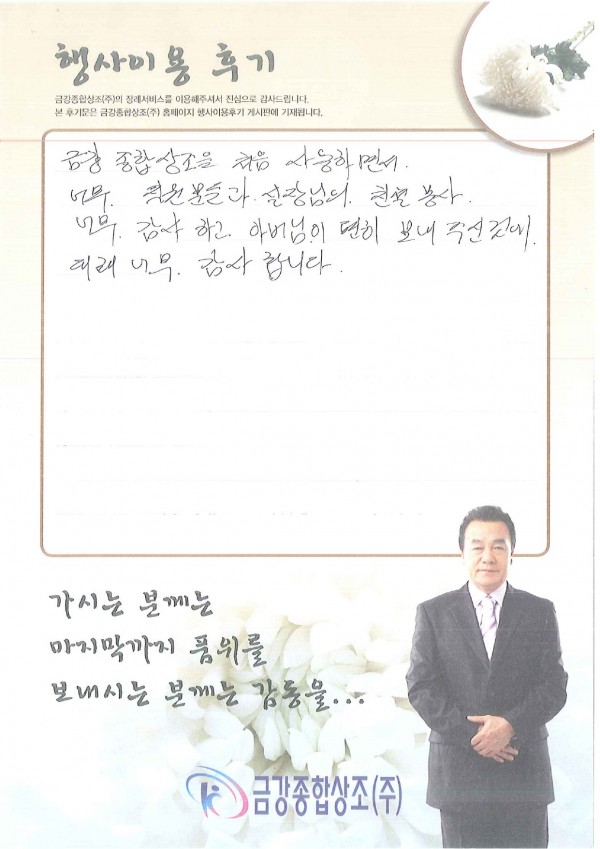 행사이용 후기
금강종합상조(주)의 장례서비스를 이용해주셔서 진심으로 감사드립니다.
본 후기문은 금강종합상조(주) 홈페이지 행사이용후기 게시판에 기재됩니다.
금강 종합상조을 처음 사용하면서.
너무. 직원분들과 실장님의. 친절 봉사.
너무. 감사 하고 아버님이 편히 보내 주신것에.
대해 너무. 감사 합니다.
가시는 분께는
마지막까지 품위를
보내시는 분께는 감동을...
금강종합상조(주)